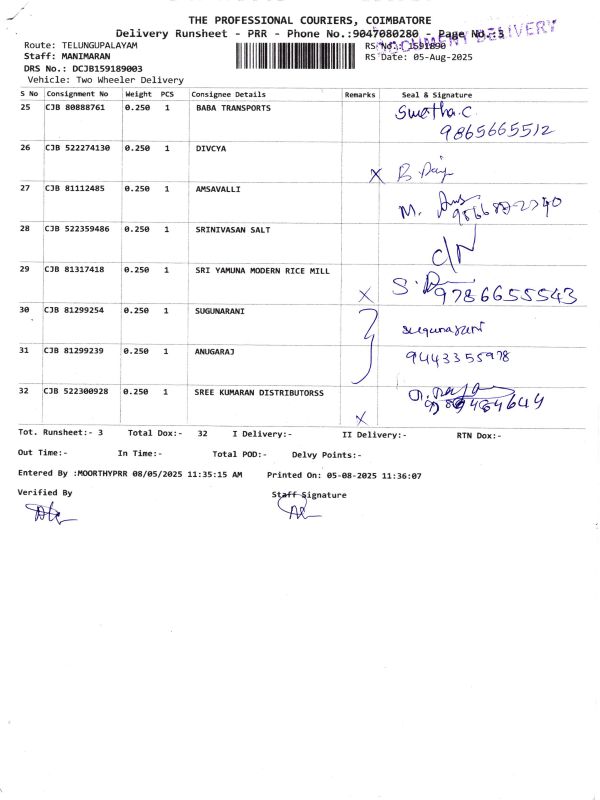 THE PROFESSIONAL COURIERS, COIMBATORE
Delivery Runsheet - PRR - Phone No.:9047080280 - Page No.:3
DOCUMENT DELIVERY
Route: TELUNGUPALAYAM
RS No.: 1591890
Staff: MANIMARAN
RS Date: 05-Aug-2025
DRS No.: DCJB159189003
Vehicle: Two Wheeler Delivery
S No Consignment No Weight PCS Consignee Details Remarks Seal & Signature
25 CJB 80888761 0.250 1 BABA TRANSPORTS Swatha.C
9865665512
26 CJB 522274130 0.250 1 DIVCYA
X B
27 CJB 81112485 0.250 1 AMSAVALLI
M.
28 CJB 522359486 0.250 1 SRINIVASAN SALT
C/N
29 CJB 81317418 0.250 1 SRI YAMUNA MODERN RICE MILL
X S.
9786655543
30 CJB 81299254 0.250 1 SUGUNARANI
sugunarani
31 CJB 81299239 0.250 1 ANUGARAJ
9443355978
32 CJB 522300928 0.250 1 SREE KUMARAN DISTRIBUTORSS
X
Tot. Runsheet:- 3 Total Dox:- 32 I Delivery:- II Delivery:- RTN Dox:-
Out Time:- In Time:- Total POD:- Delvy Points:-
Entered By :MOORTHYPRR 08/05/2025 11:35:15 AM Printed On: 05-08-2025 11:36:07
Verified By Staff Signature